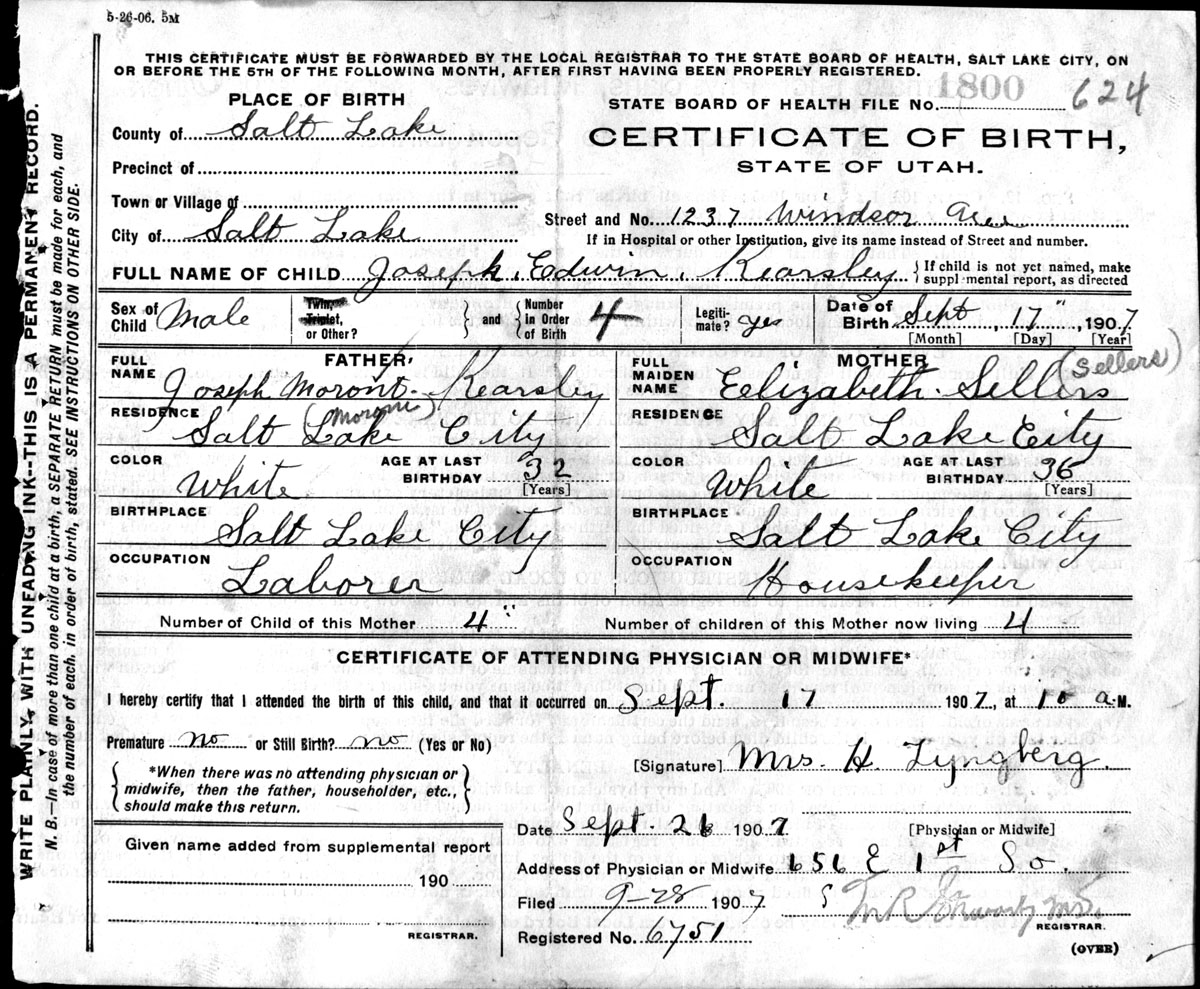 5-26-06. 5M
THIS CERTIFICATE MUST BE FORWARDED BY THE LOCAL REGISTRAR TO THE STATE BOARD OF HEALTH, SALT LAKE CITY, ON
OR BEFORE THE 5TH OF THE FOLLOWING MONTH, AFTER FIRST HAVING BEEN PROPERLY REGISTERED.
PLACE OF BIRTH
STATE BOARD OF HEALTH FILE No. 1800 624
County of Salt Lake
CERTIFICATE OF BIRTH,
STATE OF UTAH.
Precinct of
Town or Village of
Street and No. 1237 Windsor Ave
City of Salt Lake
If in Hospital or other Institution, give its name instead of Street and number.
FULL NAME OF CHILD Joseph Edwin Kearsley { If child is not yet named, make
supplmental report, as directed
Sex of Child Male
Twin, Triplet, or Other? } and { Number in Order of Birth 4
Legiti-mate? yes
Date of Birth Sept 17", 1907
[Month] [Day] [Year]
FATHER
FULL NAME Joseph Moront Kearsley
(Moroni)
RESIDENCE Salt Lake City
COLOR White AGE AT LAST BIRTHDAY 32 [Years]
BIRTHPLACE Salt Lake City
OCCUPATION Laborer
MOTHER
FULL MAIDEN NAME Eelizabeth Sellirs (Sellers)
RESIDENCE Salt Lake City
COLOR White AGE AT LAST BIRTHDAY 36 [Years]
BIRTHPLACE Salt Lake City
OCCUPATION Housekeeper
Number of Child of this Mother 4" Number of children of this Mother now living 4
CERTIFICATE OF ATTENDING PHYSICIAN OR MIDWIFE*
I hereby certify that I attended the birth of this child, and that it occurred on Sept. 17 1907, at 10 a.M.
Premature no or Still Birth? no (Yes or No)
*When there was no attending physician or
midwife, then the father, householder, etc.,
should make this return.
[Signature] Mrs. H. Lyngberg.
Date Sept. 26 1907 [Physician or Midwife]
Given name added from supplemental report
190
REGISTRAR.
Address of Physician or Midwife 656 E 1st So.
Filed 9-28 1907
REGISTRAR.
Registered No. 6751
(OVER)
WRITE PLAINLY, WITH UNFADING INK--THIS IS A PERMANENT RECORD.
N. B.—In case of more than one child at birth, a SEPARATE RETURN must be made for each, and
the number of each, in order of birth, stated. SEE INSTRUCTIONS ON OTHER SIDE.